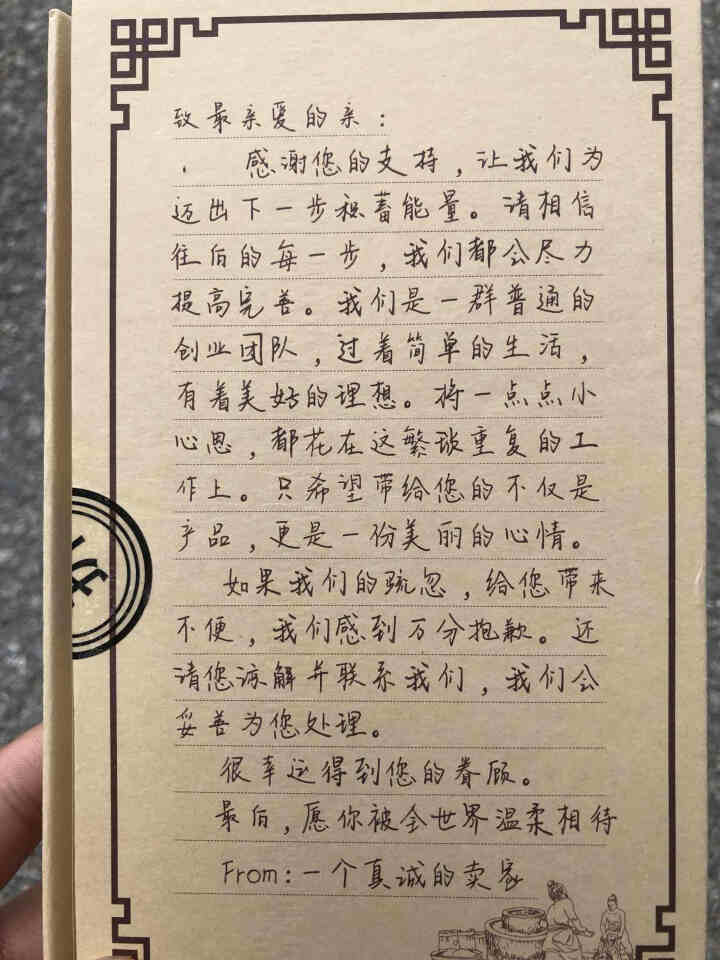 致最亲爱的亲：
感谢您的支持，让我们为
迈出下一步积蓄能量。请相信
往后的每一步，我们都会尽力
提高完善。我们是一群普通的
创业团队，过着简单的生活，
有着美好的理想。将一点点小
心思，都花在这繁琐重复的工
作上。只希望带给您的不仅是
产品，更是一份美丽的心情。
如果我们的疏忽，给您带来
不便，我们感到万分抱歉。还
请您谅解并联系我们，我们会
妥善为您处理。
很幸运得到您的眷顾。
最后，愿你被全世界温柔相待
From：一个真诚的卖家